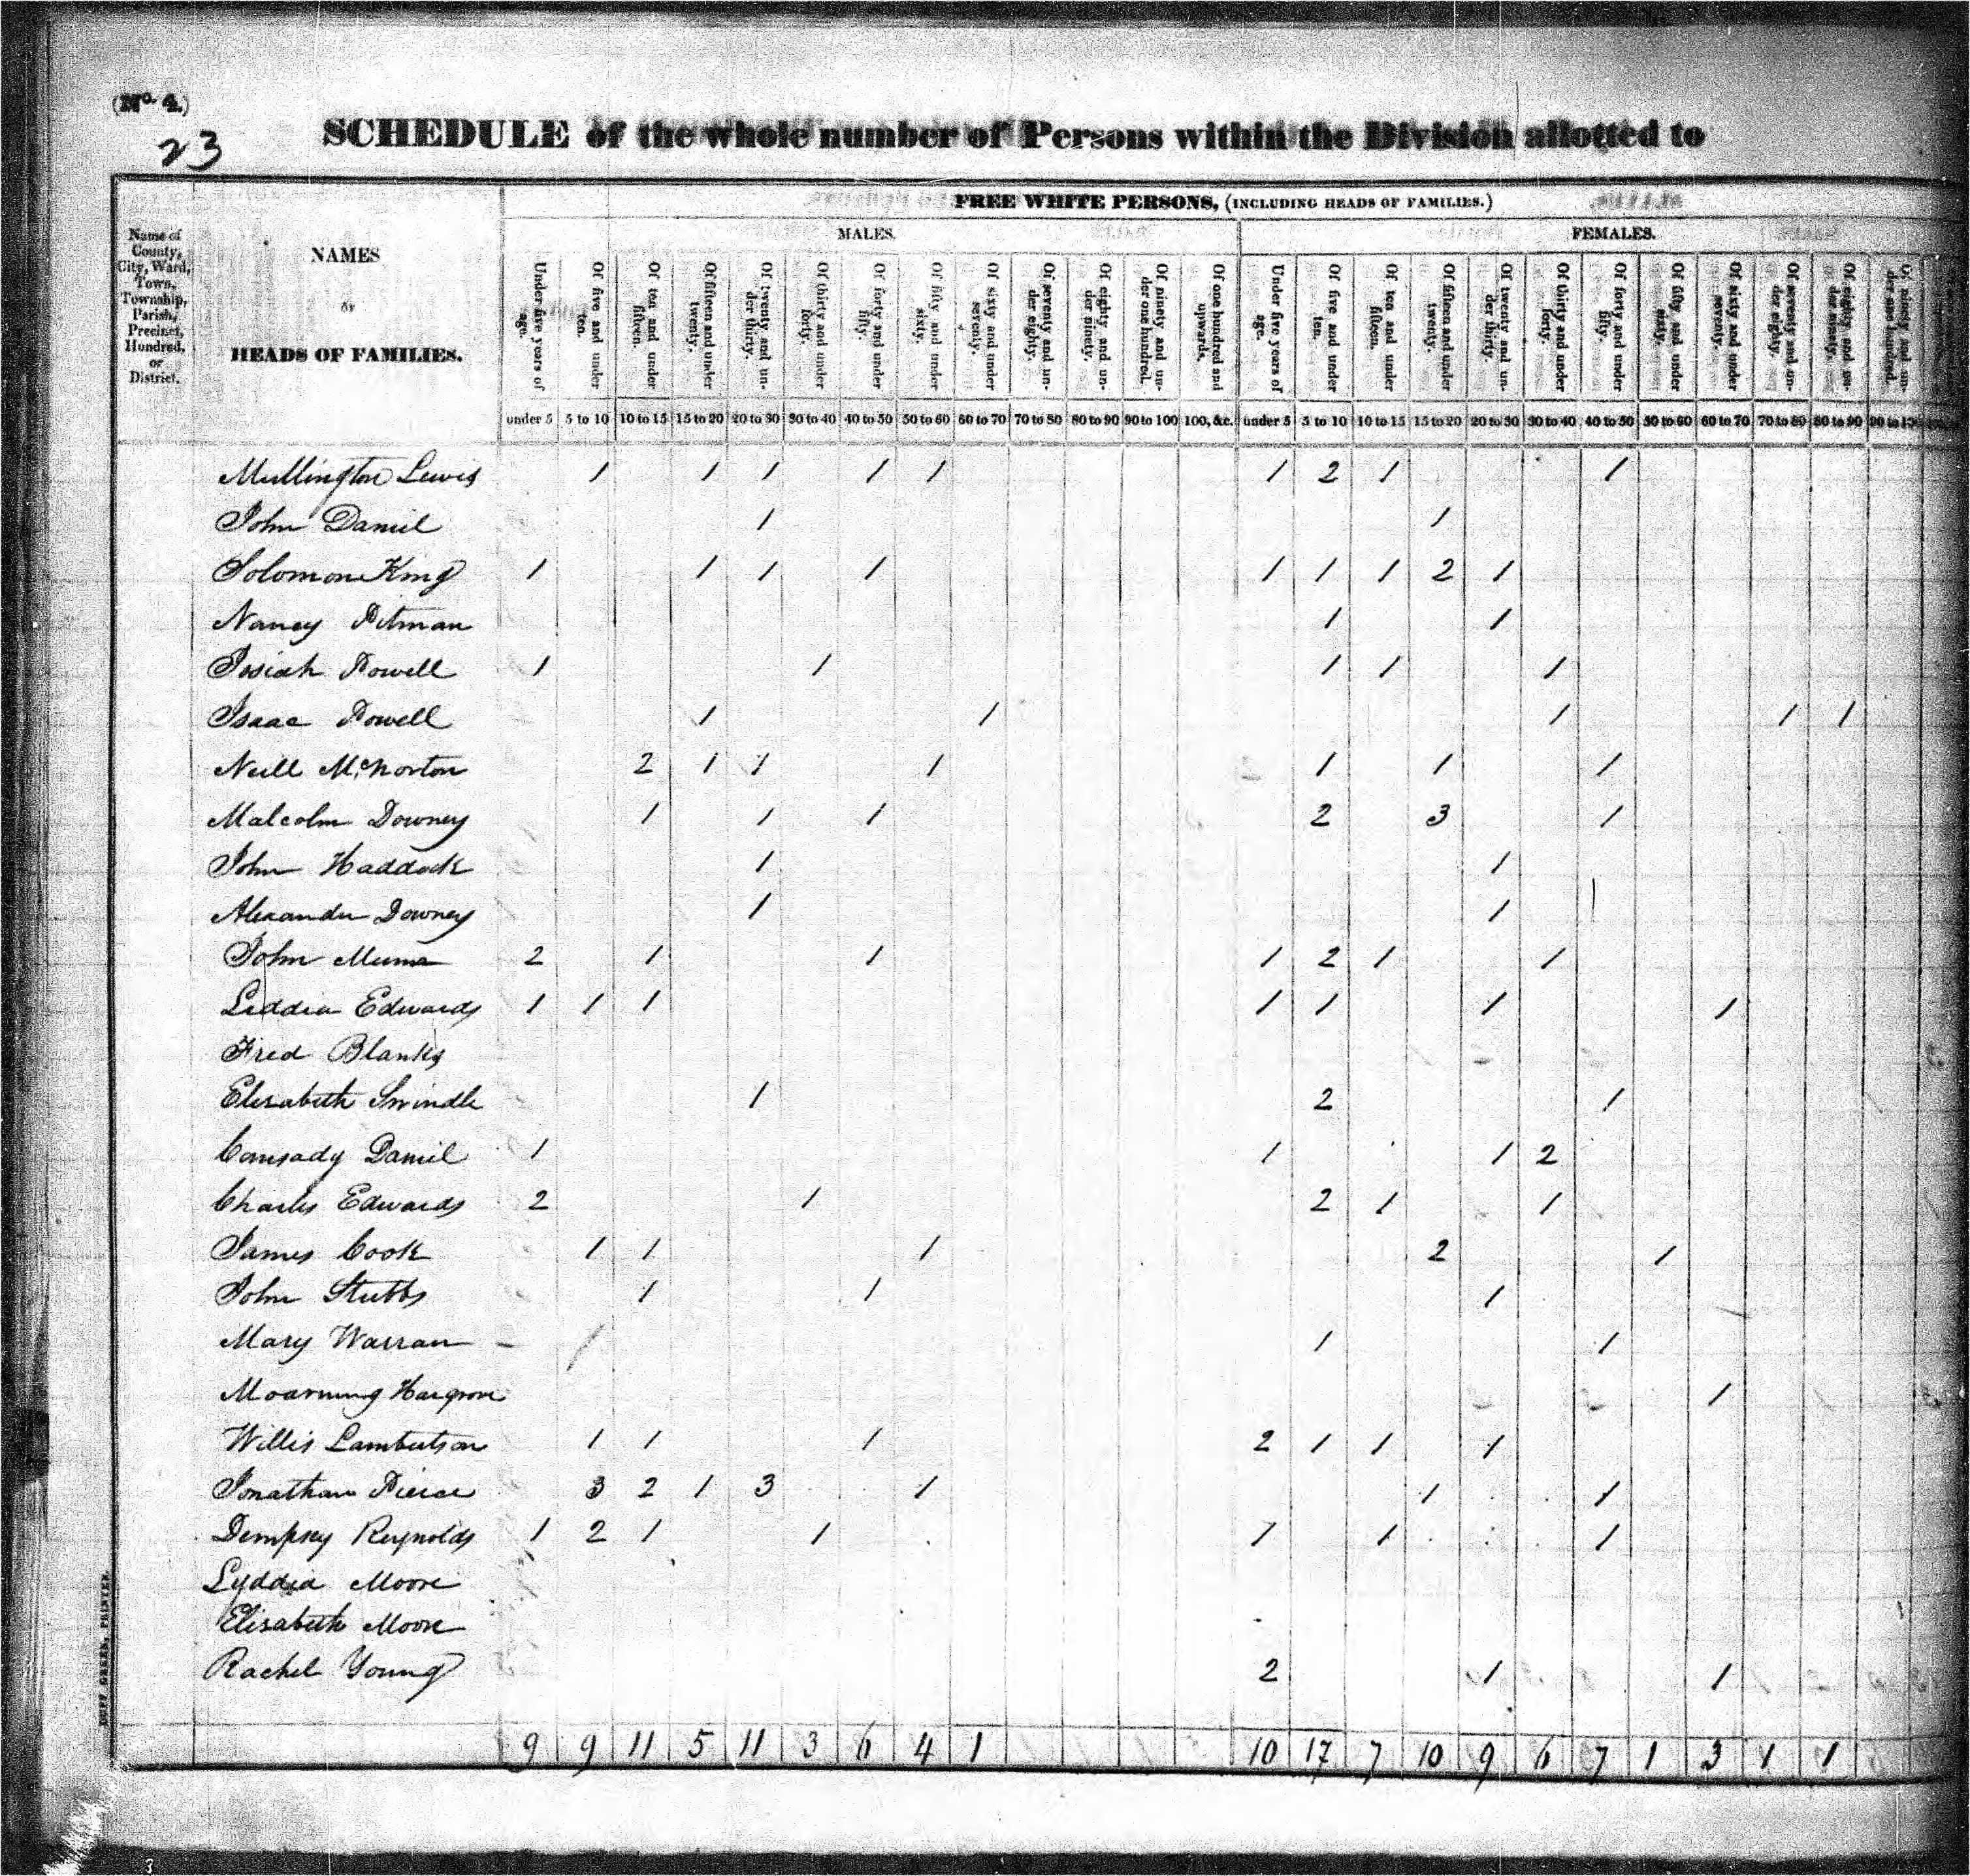 (No. 4.)
23
SCHEDULE of the whole number of Persons within the Division allotted to
FREE WHITE PERSONS, (INCLUDING HEADS OF FAMILIES.)
MALES. FEMALES.
Name of County, City, Ward, Town, Township, Parish, Precinct, Hundred, or District.
NAMES
of
HEADS OF FAMILIES.
Under five years of age. Of five and under ten. Of ten and under fifteen. Of fifteen and under twenty. Of twenty and under thirty. Of thirty and under forty. Of forty and under fifty. Of fifty and under sixty. Of sixty and under seventy. Of seventy and under eighty. Of eighty and under ninety. Of ninety and under one hundred. Of one hundred and upwards. Under five years of age. Of five and under ten. Of ten and under fifteen. Of fifteen and under twenty. Of twenty and under thirty. Of thirty and under forty. Of forty and under fifty. Of fifty and under sixty. Of sixty and under seventy. Of seventy and under eighty. Of eighty and under ninety. Of ninety and under one hundred.
under 5 5 to 10 10 to 15 15 to 20 20 to 30 30 to 40 40 to 50 50 to 60 60 to 70 70 to 80 80 to 90 90 to 100 100, &c. under 5 5 to 10 10 to 15 15 to 20 20 to 30 30 to 40 40 to 50 50 to 60 60 to 70 70 to 80 80 to 90 90 to 100
Mullington Lewis 1 1 1 1 1 1 2 1 1
John Daniel 1 1
Solomon King 1 1 1 1 1 1 1 2 1
Nancy Pitman 1 1
Josiah Powell 1 1 1 1 1
Isaac Powell 1 1 1 1 1
Neill McNorton 2 1 1 1 1 1 1
Malcolm Downey 1 1 1 2 3 1
John Haddock 1 1
Alexander Downey 1 1 1
John Munn 2 1 1 1 2 1 1
Liddia Edwards 1 1 1 1 1 1 1
Fred Blanks
Elizabeth Swindle 1 2 1
Daniel 1 1 1 2
Charles Edwards 2 1 2 1 1
James Cook 1 1 1 2 1
John Stubbs 1 1 1
Mary Warran 1 1 1
Moarning Hargrove 1
Willis Lambertson 1 1 1 2 1 1 1
Jonathan Pierce 3 2 1 3 1 1 1
Dempsey Reynolds 1 2 1 1 1 1 1
Lyddia Moore
Elisabeth Moore
Rachel Young 2 1 1
9 9 11 5 11 3 6 4 1 10 17 7 10 9 6 7 1 3 1 1
DUFF GREEN, PRINTER.
3